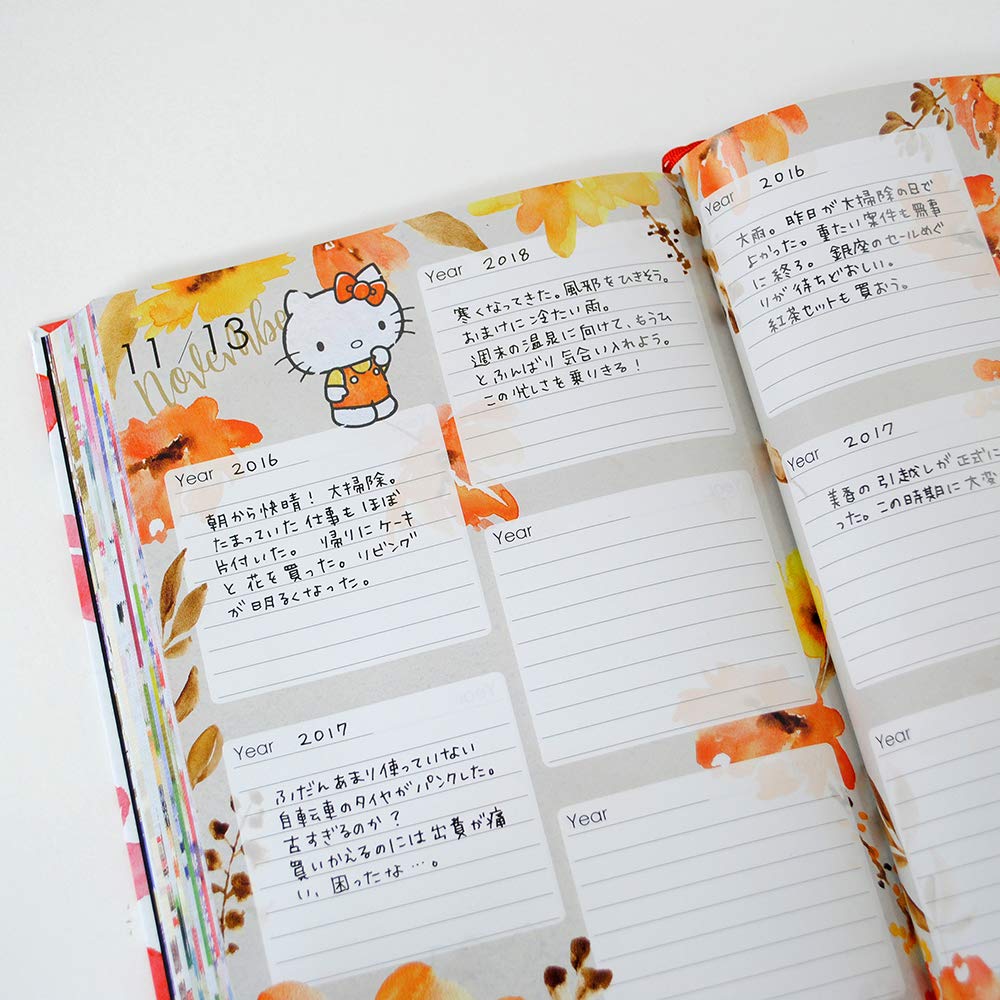 November
11/13
Year 2016
朝から快晴！大掃除。
たまっていた仕事もほぼ
片付いた。帰りにケーキ
と花を買った。リビング
が明るくなった。
Year 2017
ふだんあまり使っていない
自転車のタイヤがパンクした。
古すぎるのか？
買いかえるのには出費が痛
い、困ったな…。
Year 2018
寒くなってきた。風邪をひきそう。
おまけに冷たい雨。
週末の温泉に向けて、もうひ
とふんばり気合い入れよう。
この忙しさを乗りきる！
Year
Year
Year 2016
大雨。昨日が大掃除の日で
よかった。重たい案件も無事
に終ろ。銀座のセールめぐ
りが待ちどおしい。
紅茶セットも買おう。
Year 2017
美香の引越しが正式に
った。この時期に大変
Year